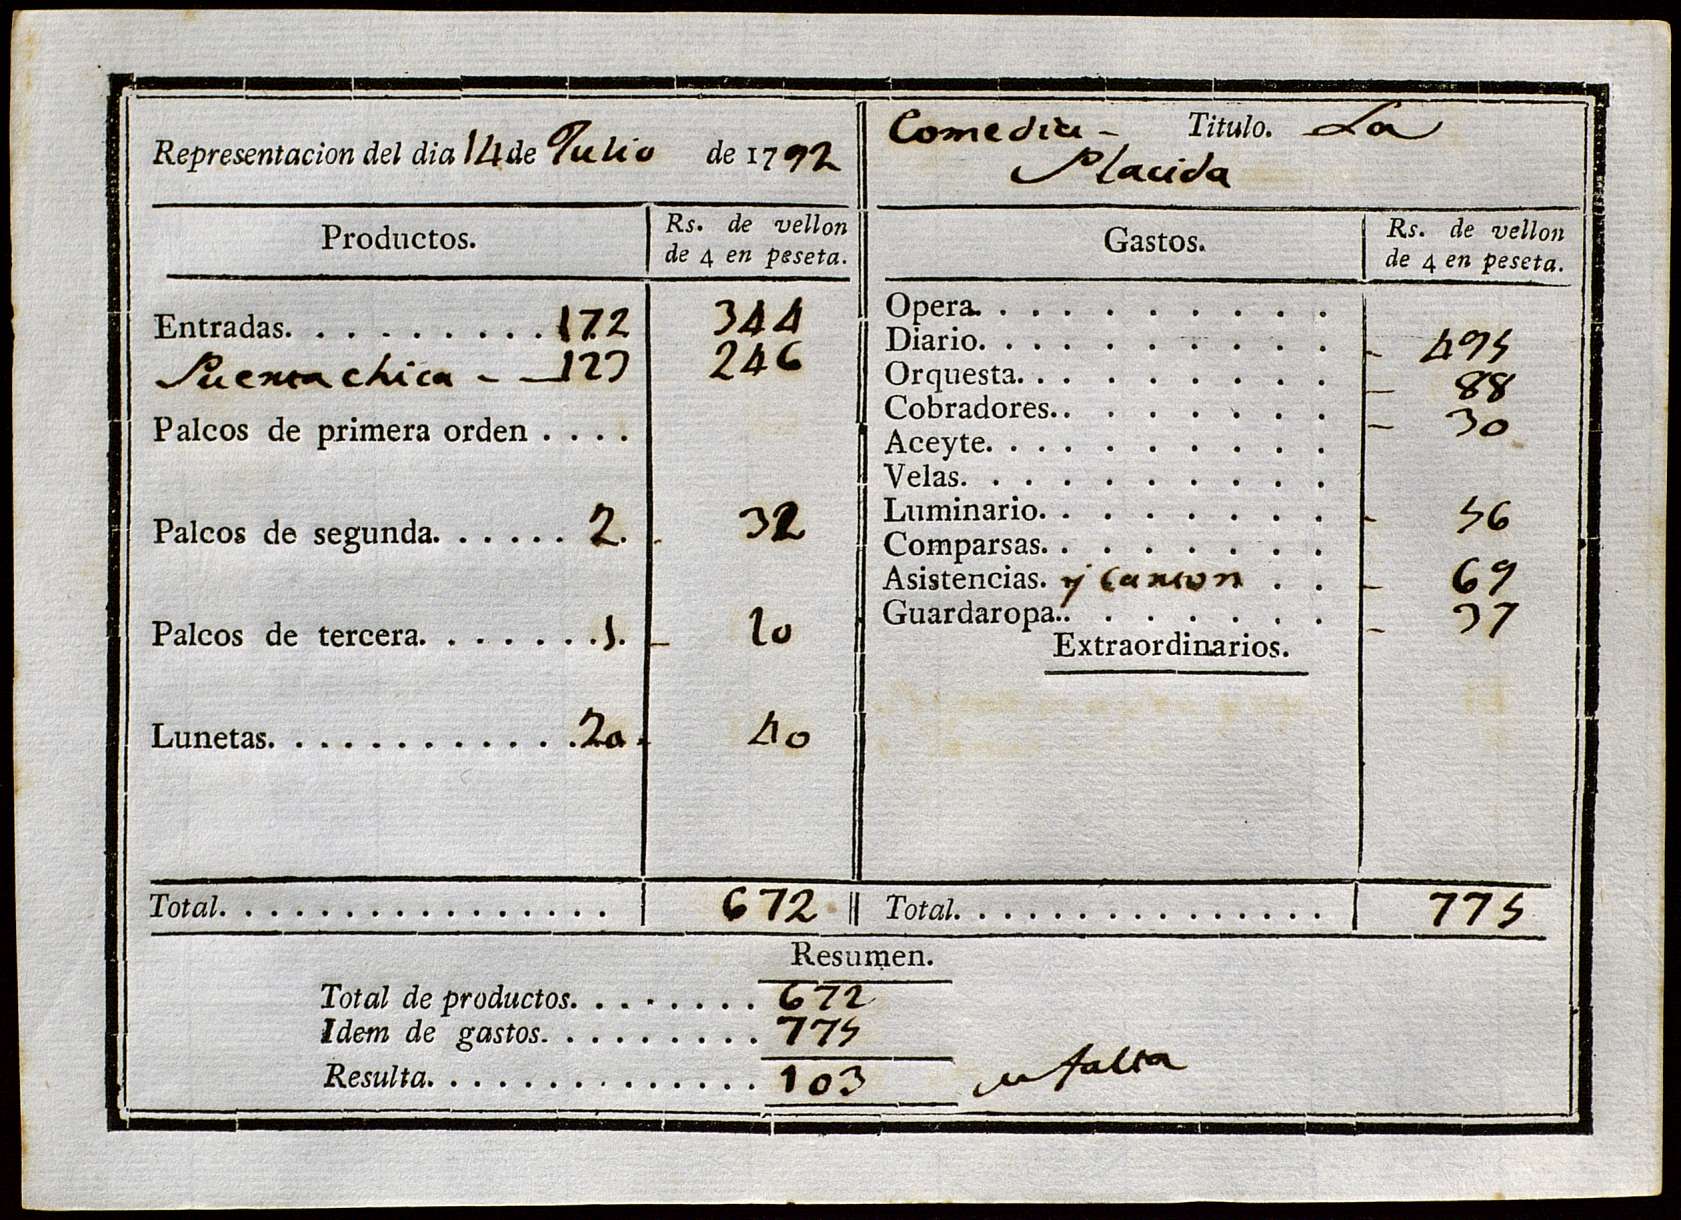 Representacion del dia 14 de Julio de 1792
Comedia - Titulo. La
Placida
Productos.
Rs. de vellon
de 4 en peseta.
Entradas. . . . . . . . . . 172 344
Puerta chica - - 123 246
Palcos de primera orden . . . .
Palcos de segunda. . . . . . 2. 32
Palcos de tercera. . . . . . . 1. 10
Lunetas. . . . . . . . . . . . . 20. 40
Total. . . . . . . . . . . . . . . . 672
Gastos.
Rs. de vellon
de 4 en peseta.
Opera. . . . . . . . . . .
Diario. . . . . . . . . . . - 495
Orquesta. . . . . . . . . . - 88
Cobradores. . . . . . . . - 30
Aceyte. . . . . . . . . . .
Velas. . . . . . . . . . .
Luminario. . . . . . . . . - 56
Comparsas. . . . . . . .
Asistencias. y . . - 69
Guardaropa. . . . . . . . - 37
Extraordinarios.
Total. . . . . . . . . . . . . . . 775
Resumen.
Total de productos. . . . . . . . 672
Idem de gastos. . . . . . . . . 775
Resulta. . . . . . . . . . . . . . 103 falta